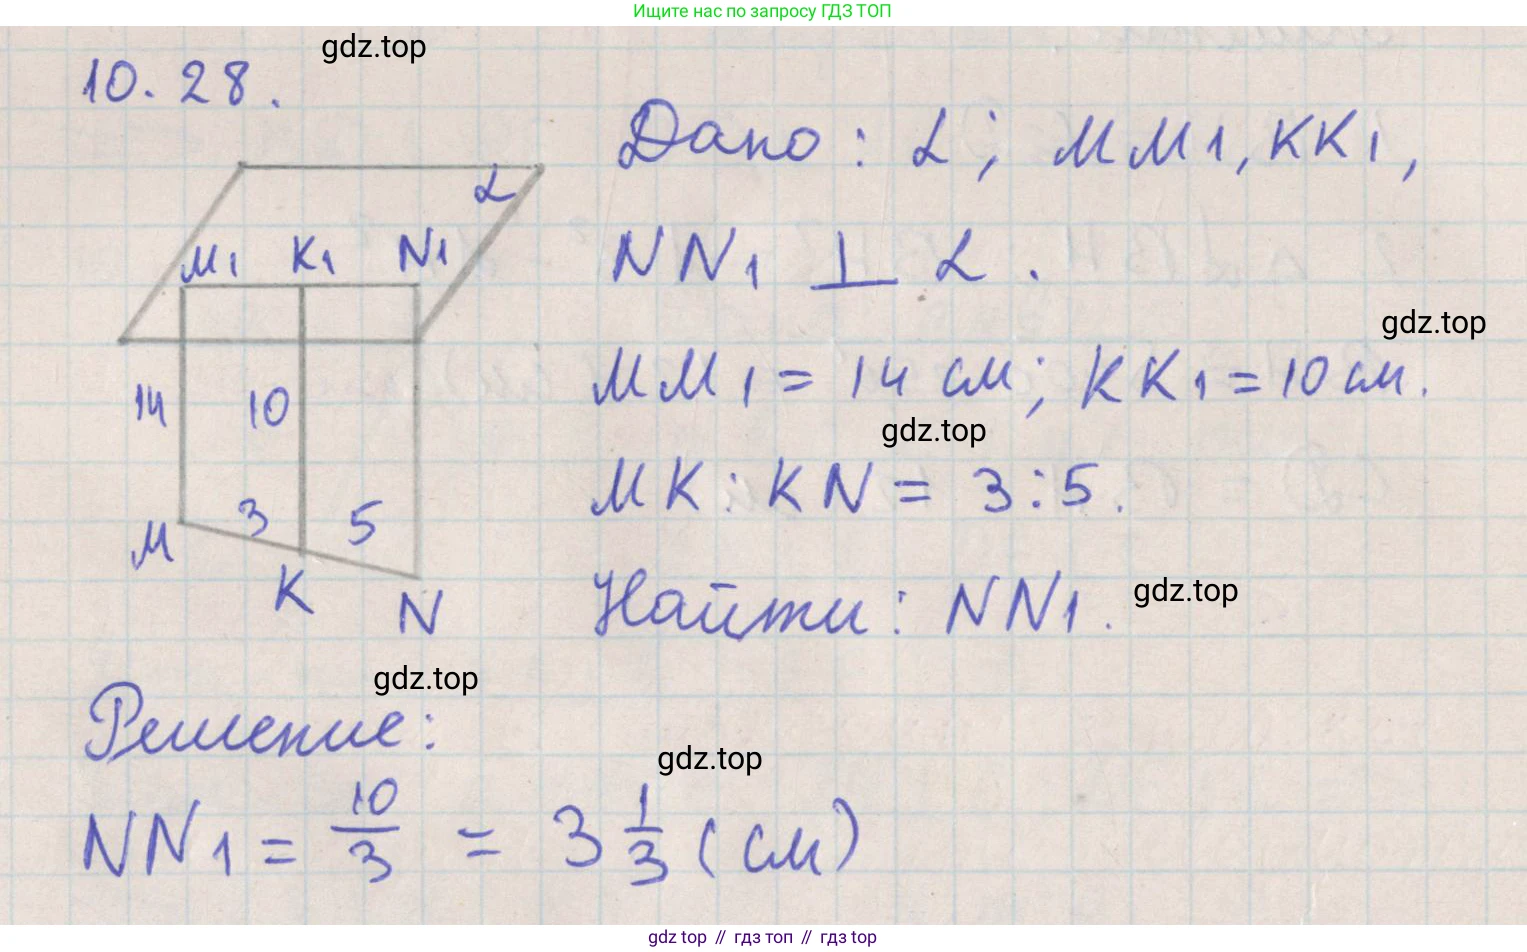 Ищите нас по запросу ГДЗ ТОП
gdz.top
10.28.
Дано: α; MM1, KK1,
α
M1 K1 N1
NN1 ⊥ α.
gdz.top
14 10
MM1 = 14 см; KK1 = 10 см.
gdz.top
MK : KN = 3 : 5.
3 5
M
K
N
Найти: NN1.
gdz.top
gdz.top
Решение:
gdz.top
NN1 = 10/3 = 3 1/3 (см)
gdz top // гдз топ // gdz top